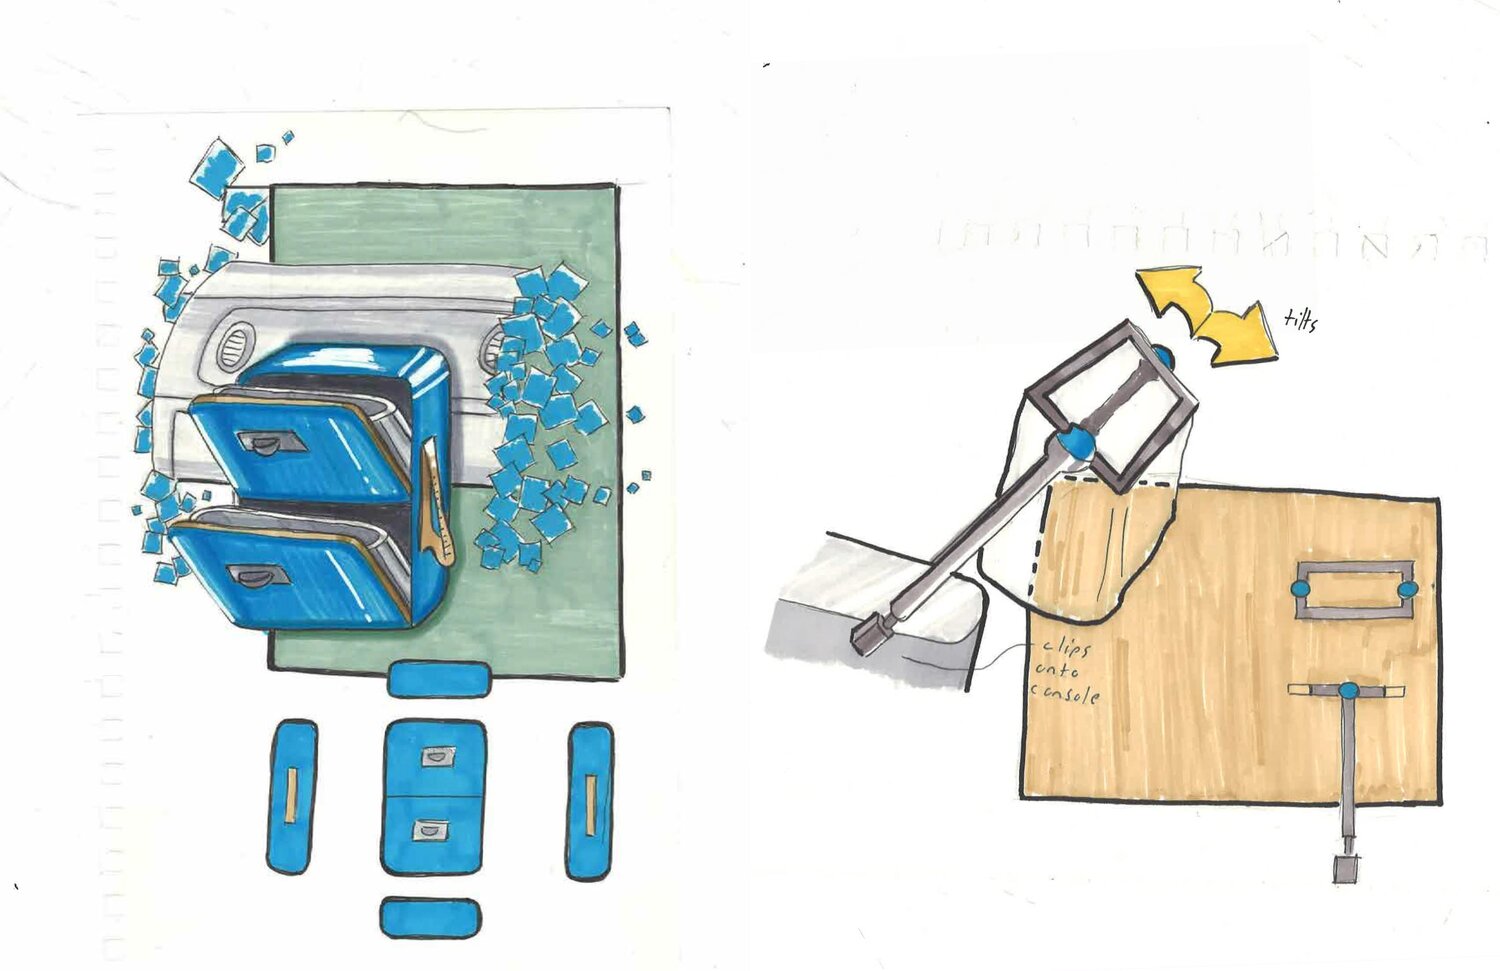 tilts
clips
onto
console